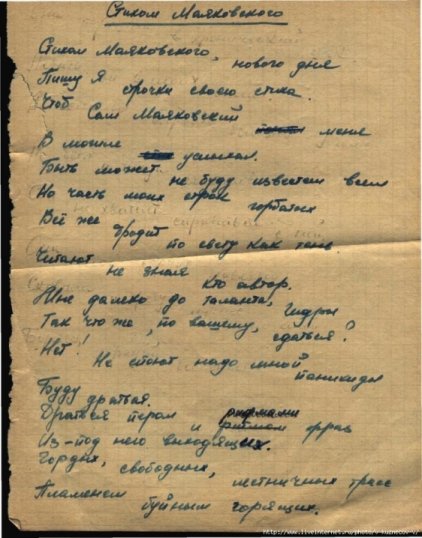 Стихом Маяковского
Стихом Маяковского,
нового дня
Пишу Я
строчки своего стиха.
Чтоб
Сам Маяковский
меня
В могиле
услыхал.
Быть может
не буду известен всем
Но часть моих строк горбатых
Всё же
бродит
по свету как тень
Читают
не зная
кто автор.
Мне далеко до таланта,
Так что же, по вашему, сдаться?
Нет!
Не споют надо мной
панихиды
Буду
драться.
Драться пером
рифмами
и ритмом фраз
Из-под него выходящих.
Гордых, свободных,
лестничных трасс
Пламенем
буйным горящих.
http://www.liveinternet.ru/photo/